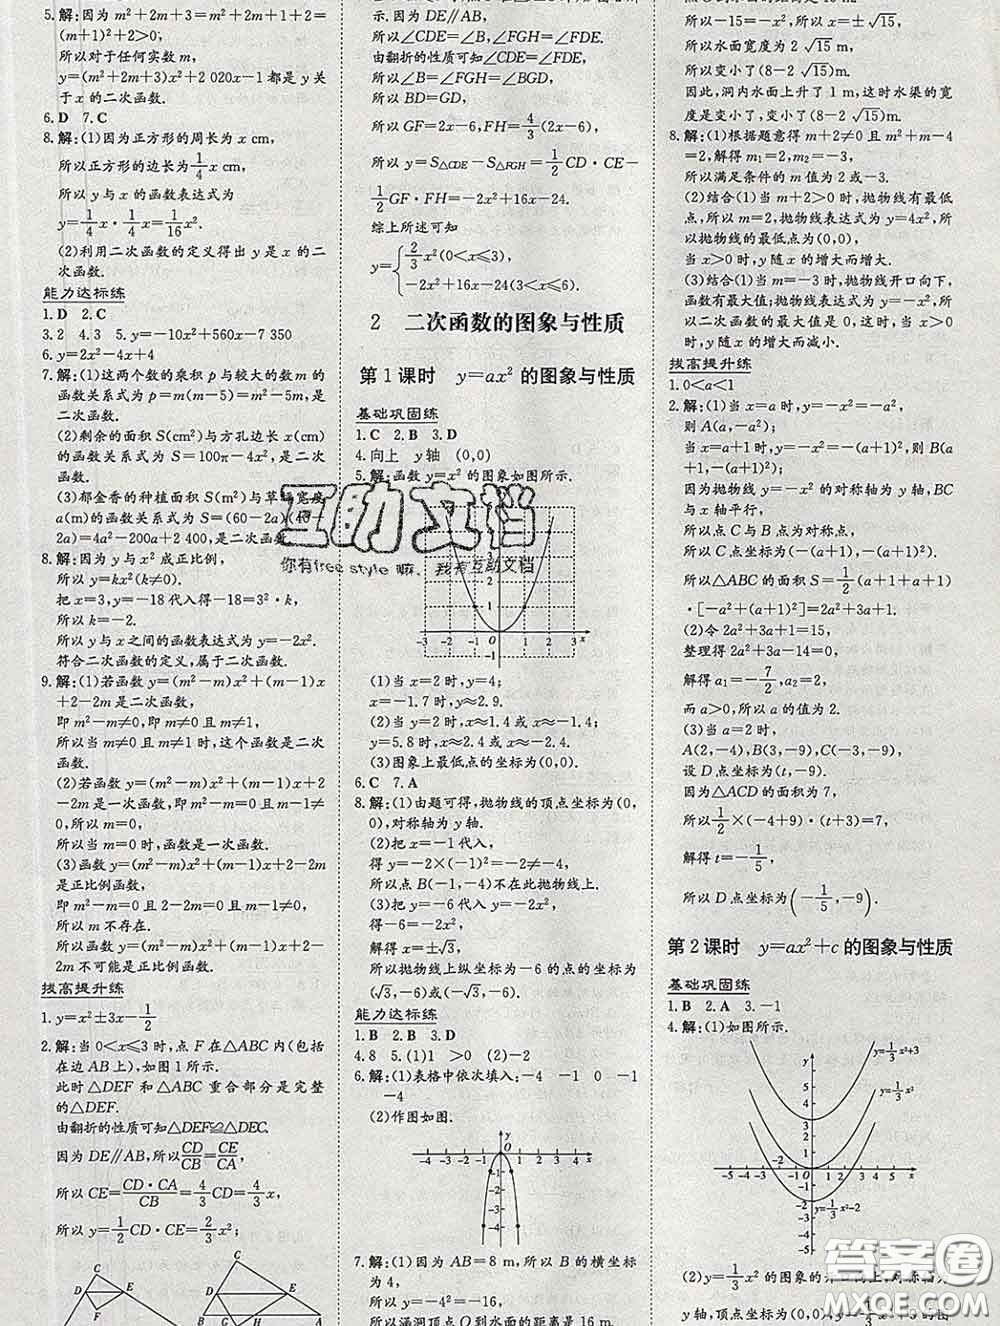 5.解:因为 m²+2m+3=m²+2m+1+2=
(m+1)²+2>0,
所以对于任何实数 m,
y=(m²+2m+3)x²+2 020x-1 都是 y 关
于 x 的二次函数.
6.D 7.C
8.解:(1)因为正方形的周长为 x cm,
所以正方形的边长为 1/4 x cm,
所以 y 与 x 的函数表达式为
y=1/4 x·1/4 x=1/16 x².
(2)利用二次函数的定义得出 y 是 x 的二
次函数.
能力达标练
1.D 2.C
3.2 4.3 5.y=-10x²+560x-7 350
6.y=2x²-4x+4
7.解:(1)这两个数的乘积 p 与较大的数 m 的
函数关系式为 p=m(m-5)=m²-5m,
是二次函数.
(2)剩余的面积 S(cm²)与方孔边长 x(cm)
的函数关系式为 S=100π-4x²,是二次
函数.
(3)郁金香的种植面积 S(m²)与草坪宽度
a(m)的函数关系式为 S=(60-2a)(40-
2a)=4a²-200a+2 400,是二次函数.
8.解:因为 y 与 x² 成正比例,
所以 y=kx²(k≠0).
把 x=3,y=-18 代入得-18=3²·k,
所以 k=-2.
所以 y 与 x 之间的函数表达式为 y=-2x².
符合二次函数的定义,属于二次函数.
9.解:(1)若函数 y=(m²-m)x²+(m-1)x
+2-2m 是二次函数,
即 m²-m≠0,即 m≠0 且 m≠1,
所以当 m≠0 且 m≠1 时,这个函数是二次
函数.
(2)若函数 y=(m²-m)x²+(m-1)x+2-
2m 是一次函数,即 m²-m=0 且 m-1≠0,
所以 m=0,
所以当 m=0 时,函数是一次函数.
(3)函数 y=(m²-m)x²+(m-1)x+2-2m
是正比例函数,
即 m²-m=0 且 2-2m=0 且 m-1≠0,
所以 m 不存在.
所以函数 y=(m²-m)x²+(m-1)x+2-
2m 不可能是正比例函数.
拔高提升练
1.y=x²±3x-1/2
2.解:当 0<x≤3 时,点 F 在△ABC 内(包括
在边 AB 上),如图 1 所示.
此时△DEF 和△ABC 重合部分是完整
的△DEF.
由翻折的性质可知△DEF≌△DEC.
因为 DE∥AB,所以 CD/CB=CE/CA,
所以 CE=CD·CA/CB=4/3 CD=4/3 x,
所以 y=1/2 CD·CE=2/3 x²;
C
D
E
F
C
D
E
因为 DE∥AB,
所以∠CDE=∠B,∠FGH=∠FDE.
由翻折的性质可知∠CDE=∠FDE,
所以∠B=∠FGH=∠BGD,
所以 BD=GD,
所以 GF=2x-6,FH=4/3(2x-6),
所以 y=S△CDE-S△FGH=1/2 CD·CE-
1/2 GF·FH=-2x²+16x-24.
综上所述可知
y={2/3 x²(0<x≤3),
-2x²+16x-24(3<x≤6).
2 二次函数的图象与性质
第 1 课时 y=ax² 的图象与性质
基础巩固练
1.C 2.B 3.D
4.向上 y 轴 (0,0)
5.解:函数 y=x² 的图象如图所示.
互助文档
你有free style 嘛, 我有互助文档
3
2
1
-3 -2 -1 O 1 2 3 x
-1
(1)当 x=2 时,y=4;
x=-1.7 时,y≈2.9.
(2)当 y=2 时,x≈1.4 或 x≈-1.4;
y=5.8 时,x≈2.4 或 x≈-2.4.
(3)图象上最低点的坐标为(0,0).
6.C 7.A
8.解:(1)由题可得,抛物线的顶点坐标为(0,
0),对称轴为 y 轴.
(2)把 x=-1 代入,
得 y=-2×(-1)²=-2≠-4,
所以点 B(-1,-4)不在此抛物线上.
(3)把 y=-6 代入 y=-2x²,
得-6=-2x²,
解得 x=±√3,
所以抛物线上纵坐标为-6 的点的坐标为
(√3,-6)或(-√3,-6).
能力达标练
1.B 2.B 3.D
4.8 5.(1)1 >0 (2)-2
6.解:(1)表格中依次填入:-4 -1 0 -1
-4
(2)作图如图.
y
-4 -3 -2 -1 O 1 2 3 4 x
-1
-2
-3
-4
7.解:(1)因为 AB=8 m,所以 B 的横坐标
为 4,
所以 y=-4²=-16,
所以涵洞顶点 O 到水面的距离是 16 m.
所以-15=-x²,所以 x=±√15,
所以水面宽度为 2√15 m.
所以变小了(8-2√15)m.
因此,洞内水面上升了 1 m,这时水渠的宽
度是变小了,变小了(8-2√15)m.
8.解:(1)根据题意得 m+2≠0 且 m²+m-4
=2,解得 m₁=2,m₂=-3,
所以满足条件的 m 值为 2 或-3.
(2)结合(1)当 m+2>0 时,抛物线有最低
点,所以 m=2,抛物线表达式为 y=4x²,
所以抛物线的最低点为(0,0),
当 x>0 时,y 随 x 的增大而增大.
(3)结合(1)当 m=-3 时,抛物线开口向下,
函数有最大值;抛物线表达式为 y=-x²,
所以二次函数的最大值是 0,这时,当 x>0
时,y 随 x 的增大而减小.
拔高提升练
1.0<a<1
2.解:(1)当 x=a 时,y=-x²=-a²,
则 A(a,-a²).
当 x=a+1 时,y=-x²=-(a+1)²,则 B(a
+1,-(a+1)²).
因为抛物线 y=-x² 的对称轴为 y 轴,BC
与 x 轴平行,
所以点 C 与 B 点为对称点,
所以 C 点坐标为(-(a+1),-(a+1)²),
所以△ABC 的面积 S=1/2(a+1+a+1)
·[-a²+(a+1)²]=2a²+3a+1.
(2)令 2a²+3a+1=15,
整理得 2a²+3a-14=0,
解得 a₁=-7/2,a₂=2,
而 a>0,所以 a 的值为 2.
(3)当 a=2 时,
A(2,-4),B(3,-9),C(-3,-9),
设 D 点坐标为(t,-9).
因为△ACD 的面积为 7,
所以 1/2×(-4+9)·(t+3)=7,
解得 t=-1/5,
所以 D 点坐标为(-1/5,-9).
第 2 课时 y=ax²+c 的图象与性质
基础巩固练
1.B 2.A 3.-1
4.解:(1)如图所示.
y=1/3 x²+3
y=1/3 x²
5
4
3
2
1
-5 -4 -3 -2 O 1 2 3 4 5 x
-1
-2
y=1/3 x²-2
-3
-4
-5
(2)y=1/3 x² 的图象的开口向上,对称轴为
y 轴,顶点坐标为(0,0);y=-1/3 x²
答案圈
MXQE.COM